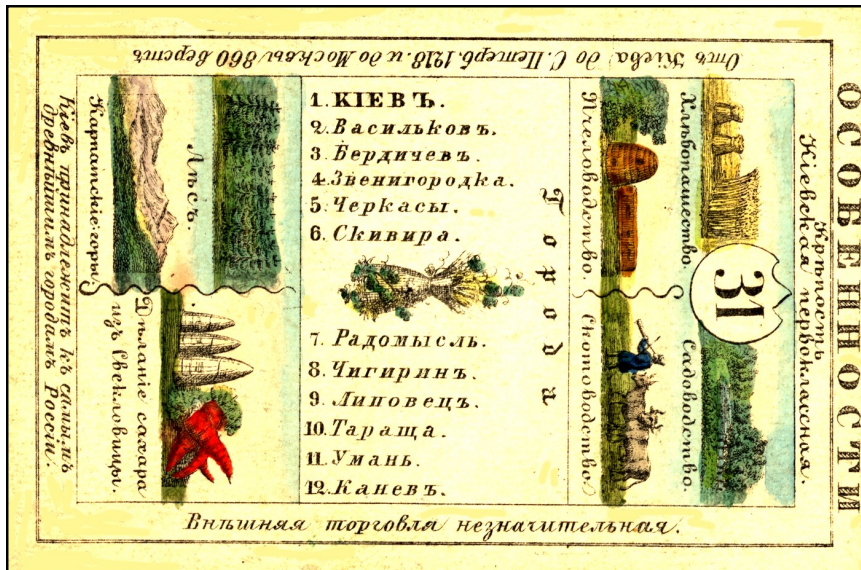 ОСОБЕННОСТИ
Отъ Кіева до С. Петерб. 1218. и до Москвы 860 верстъ
Крѣпость
Кіевская первоклассная.
31
Хлѣбопашество.
Садоводство.
Пчеловодство.
Скотоводство.
Города
1. КІЕВЪ.
2. Васильковъ.
3. Бердичевъ.
4. Звенигородка.
5. Черкасы.
6. Сквира.
7. Радомысль.
8. Чигиринъ.
9. Липовецъ.
10. Тараща.
11. Умань.
12. Каневъ.
Лѣсъ.
Карпатскіе горы.
Дѣланіе сахара
изъ Свекловицы.
Кіевъ принадлежитъ къ самымъ
древнѣйшимъ городамъ Россіи.
Внѣшняя торговля незначительная.